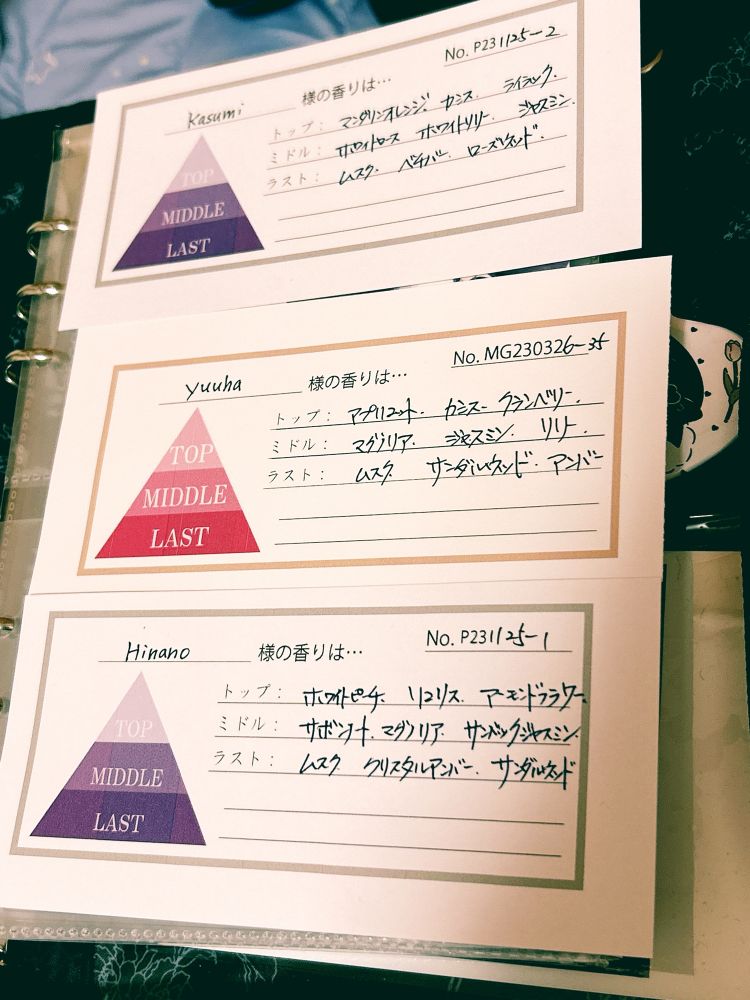 No. P231125-2
Kasumi 様の香りは…
トップ： マンダリンオレンジ. カシス. ライラック.
ミドル： ホワイトローズ ホワイトリリー. ジャスミン.
ラスト： ムスク. ベチバー. ローズウッド.
TOP
MIDDLE
LAST
No. MG230326-35
yuuha 様の香りは…
トップ： アプリコット. カシス クランベリー.
ミドル： マグノリア. ジャスミン. リリー.
ラスト： ムスク サンダルウッド. アンバー
TOP
MIDDLE
LAST
No. P231125-1
Hinano 様の香りは…
トップ： ホワイトピーチ. リコリス. アーモンドフラワー.
ミドル： サボンノート. マグノリア. サンバックジャスミン.
ラスト： ムスク. クリスタルアンバー. サンダルウッド
TOP
MIDDLE
LAST